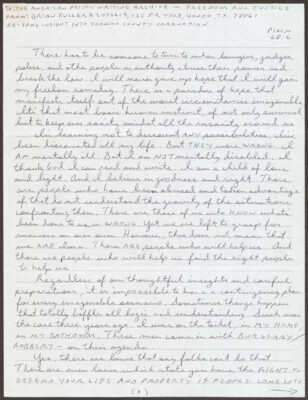 TO: THE AMERICAN PRISON WRITING ARCHIVE — FREEDOM AND JUSTICE
FROM: BRIAN FULLER
RE: SOME INSIGHT INTO COUNTY CORRUPTION
There has to be someone to turn to when lawyers, judges,
police, and other people in authority abuse their power and
break the law. I will never give up hope that I will gain
my freedom someday. There is a paradox of hope that
manifests itself out of the worst circumstances imaginable
It's that most base human instinct, of not only survival,
but to keep our sanity amidst all the insanity around us
I'm learning not to discount ANY possibilities. I've
been discounted all my life. But THEY were WRONG. I
AM mentally ill. But I am NOT mentally disabled. I
thank God I can read and write. I am a child of love
and light. And I believe in goodness and right. There
are people who have been abused and taken advantage
of that do not understand the gravity of the situations
confronting them. There are those of us who KNOW what's
been done to us is WRONG. Yet we are left to grasp for
answers on our own. However, this does not mean that
we ARE alone. There ARE people who will help us. And
there are people who will help us find the right people
to help us.
Regardless of our thoughtful insights and careful
preparations, it is impossible to have a contingency plan
for every imaginable scenario. Sometimes things happen
that totally baffle all logic and understanding. Such was
the case three years ago. I was on the toilet, in MY HOME,
in MY BATHROOM. Three men came in with BURGLARY/
ROBBERY — on their agenda.
Yes, there are laws that say folks can't do that
There are even laws which state you have the RIGHT TO
DEFEND YOUR LIFE AND PROPERTY IF PEOPLE COME INTO
(1)